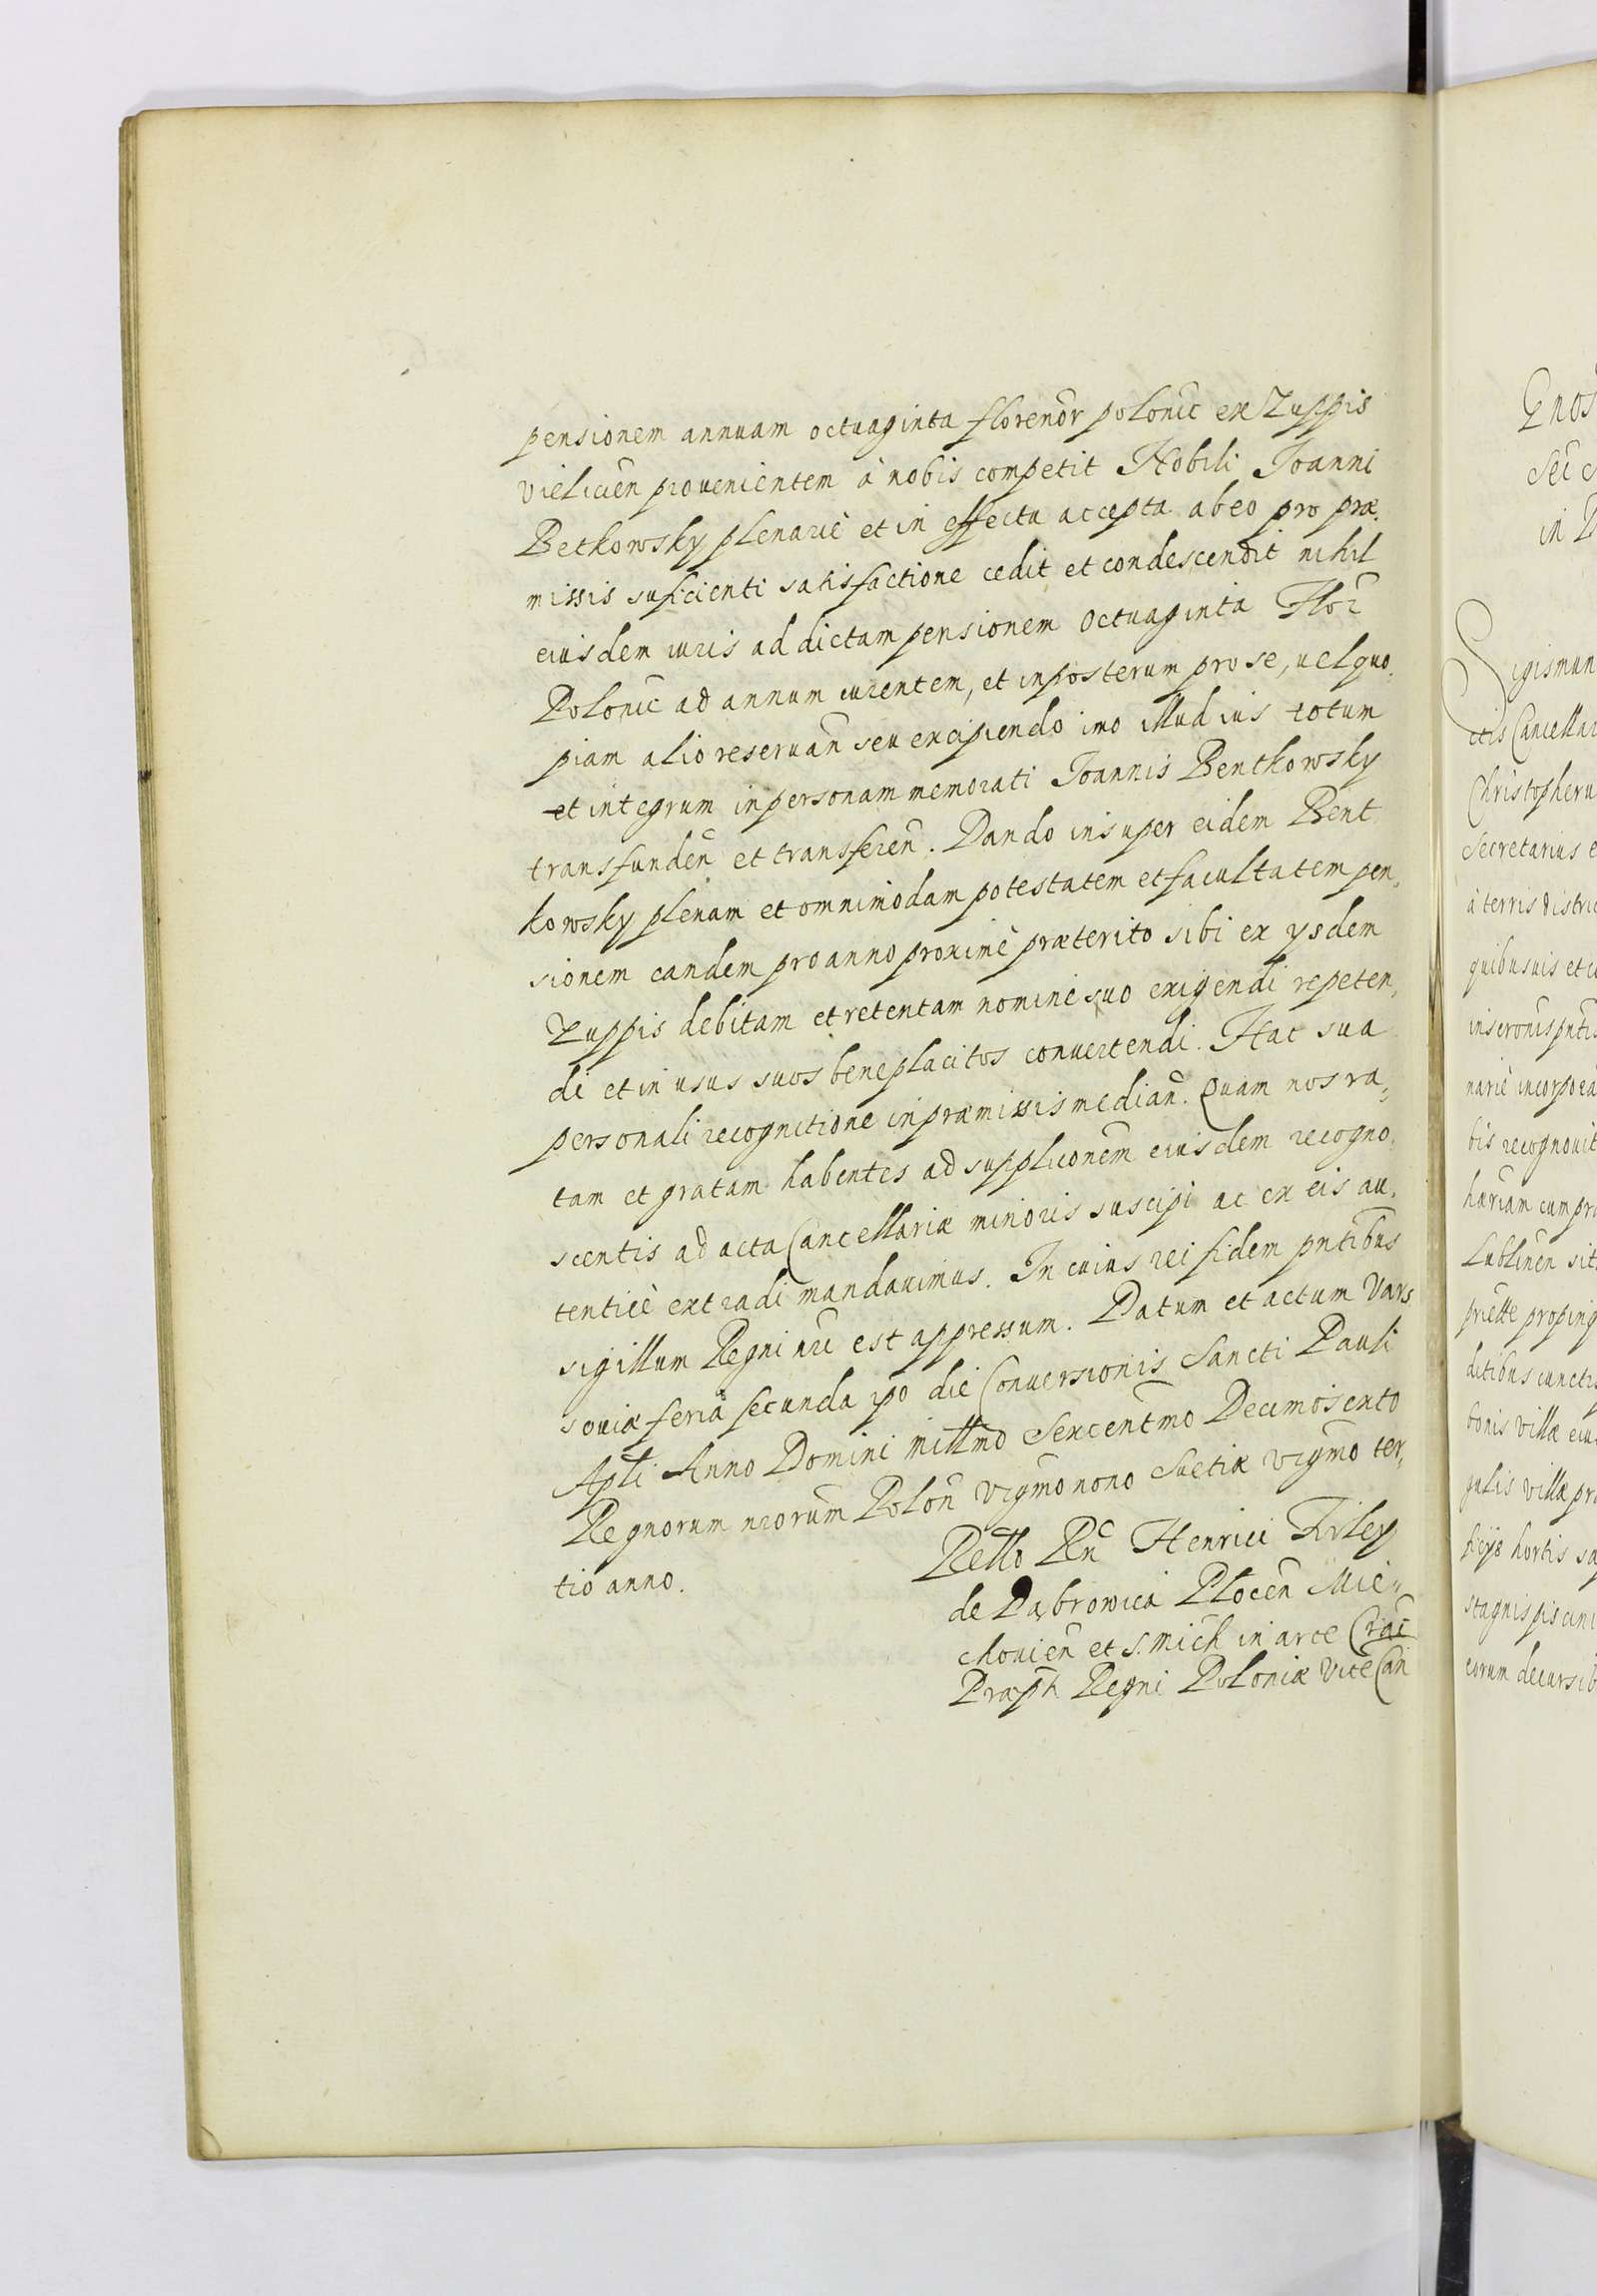 pensionem annuam octuaginta florenōr polonic̄ ex Zuppis
Vielicień prouenientem à nobis competit Nobili Joanni
Betkowsky plenariè et in effectu accepta ab eo pro præ,
missis suficienti satisfactione cedit et condescendit nihil
eiusdem iuris ad dictam pensionem Octuaginta Flor̄
Polonic̄ ad annum currentem, et inposterum pro se, uel quo,
piam alio reseruan̄ seu excipiendo imo illud ius totum
et integrum in personam memorati Joannis Bentkowsky
transfunden̄ et transferen̄. Dando insuper eidem Bent
kowsky plenam et omnimodam potestatem et facultatem pen,
sionem eandem pro anno proximè præterito sibi ex ysdem
Zuppis debitam et retentam nomine suo exigendi repeten,
di et in usus suos beneplacitos conuertendi. Hac sua
personali recognitione in præmissis median̄. Quam nos ra,
tam et gratam habentes ad supplicon̄em eiusdem recogno,
scentis ad acta Cancellariæ minoris suscipi ac ex eis au,
tenticè extradi mandauimus. In cuius rei fidem pntibus
sigillum Regni nrī est appressum. Datum et actum Vars,
souiæ feria secunda ipo die Conuersionis Sancti Pauli
Apli Anno Domini millmo Sexcentmo Decimosexto
Regnorum nrorum Polon̄ vigmonono Suetiæ vigmo ter,
tio anno.
Rello Rn̄ Henrici Firley
de Dąbrowica Plocen̄ Mie,
chouien̄ et S. Mich in arce Crac̄
Præpti Regni Poloniæ Vice Can̄
Sigismun
ctis Cancellar
Christopheru
Secretarius e
à terris distric
bis recognouit
Lublinen̄ sit
ditibus cunctis
bonis villæ eiu
gulis villæ pro
ficijs hortis sa
stagnis piscini
eorum decursib